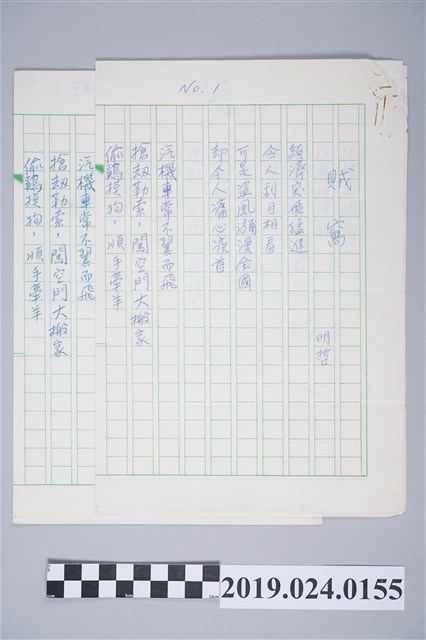 No. 1
賊窩
明哲
經濟突飛猛進
令人刮目相看
可是盜風瀰漫全國
却令人痛心疾首
汽機車常不翼而飛
搶劫勒索，闖空門大搬家
偷鷄摸狗，順手牽羊
汽機車常不翼而飛
搶劫勒索，闖空門大搬家
偷鷄摸狗，順手牽羊
2019.024.0155